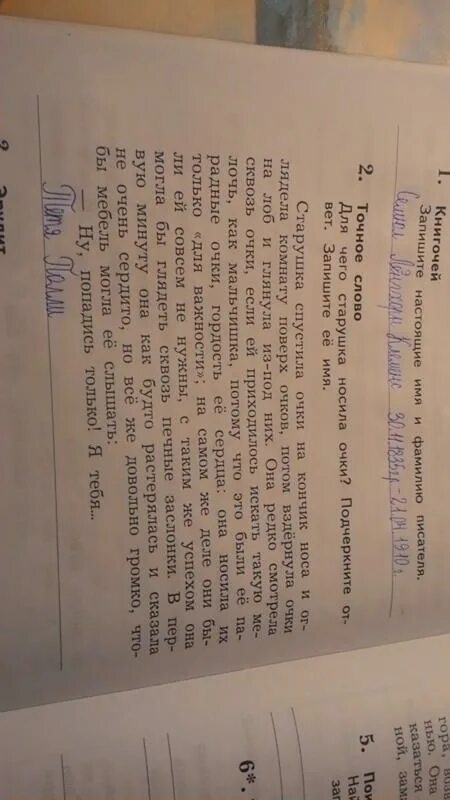 1. Книгочей
Запишите настоящие имя и фамилию писателя.
Самюэл Лэнгхорн Клеменс 30.11.1835г.-21.04.1910г.
2. Точное слово
Для чего старушка носила очки? Подчеркните от-
вет. Запишите её имя.
Старушка спустила очки на кончик носа и ог-
лядела комнату поверх очков, потом вздёрнула очки
на лоб и глянула из-под них. Она редко смотрела
сквозь очки, если ей приходилось искать такую ме-
лочь, как мальчишка, потому что это были её па-
радные очки, гордость её сердца: она носила их
только «для важности»; на самом же деле они бы-
ли ей совсем не нужны, с таким же успехом она
могла бы глядеть сквозь печные заслонки. В пер-
вую минуту она как будто растерялась и сказала
не очень сердито, но всё же довольно громко, что-
бы мебель могла её слышать:
— Ну, попадись только! Я тебя...
Тётя Полли
Эрудит
5.
6*.
гора,
нью. Она
казаться
ной,